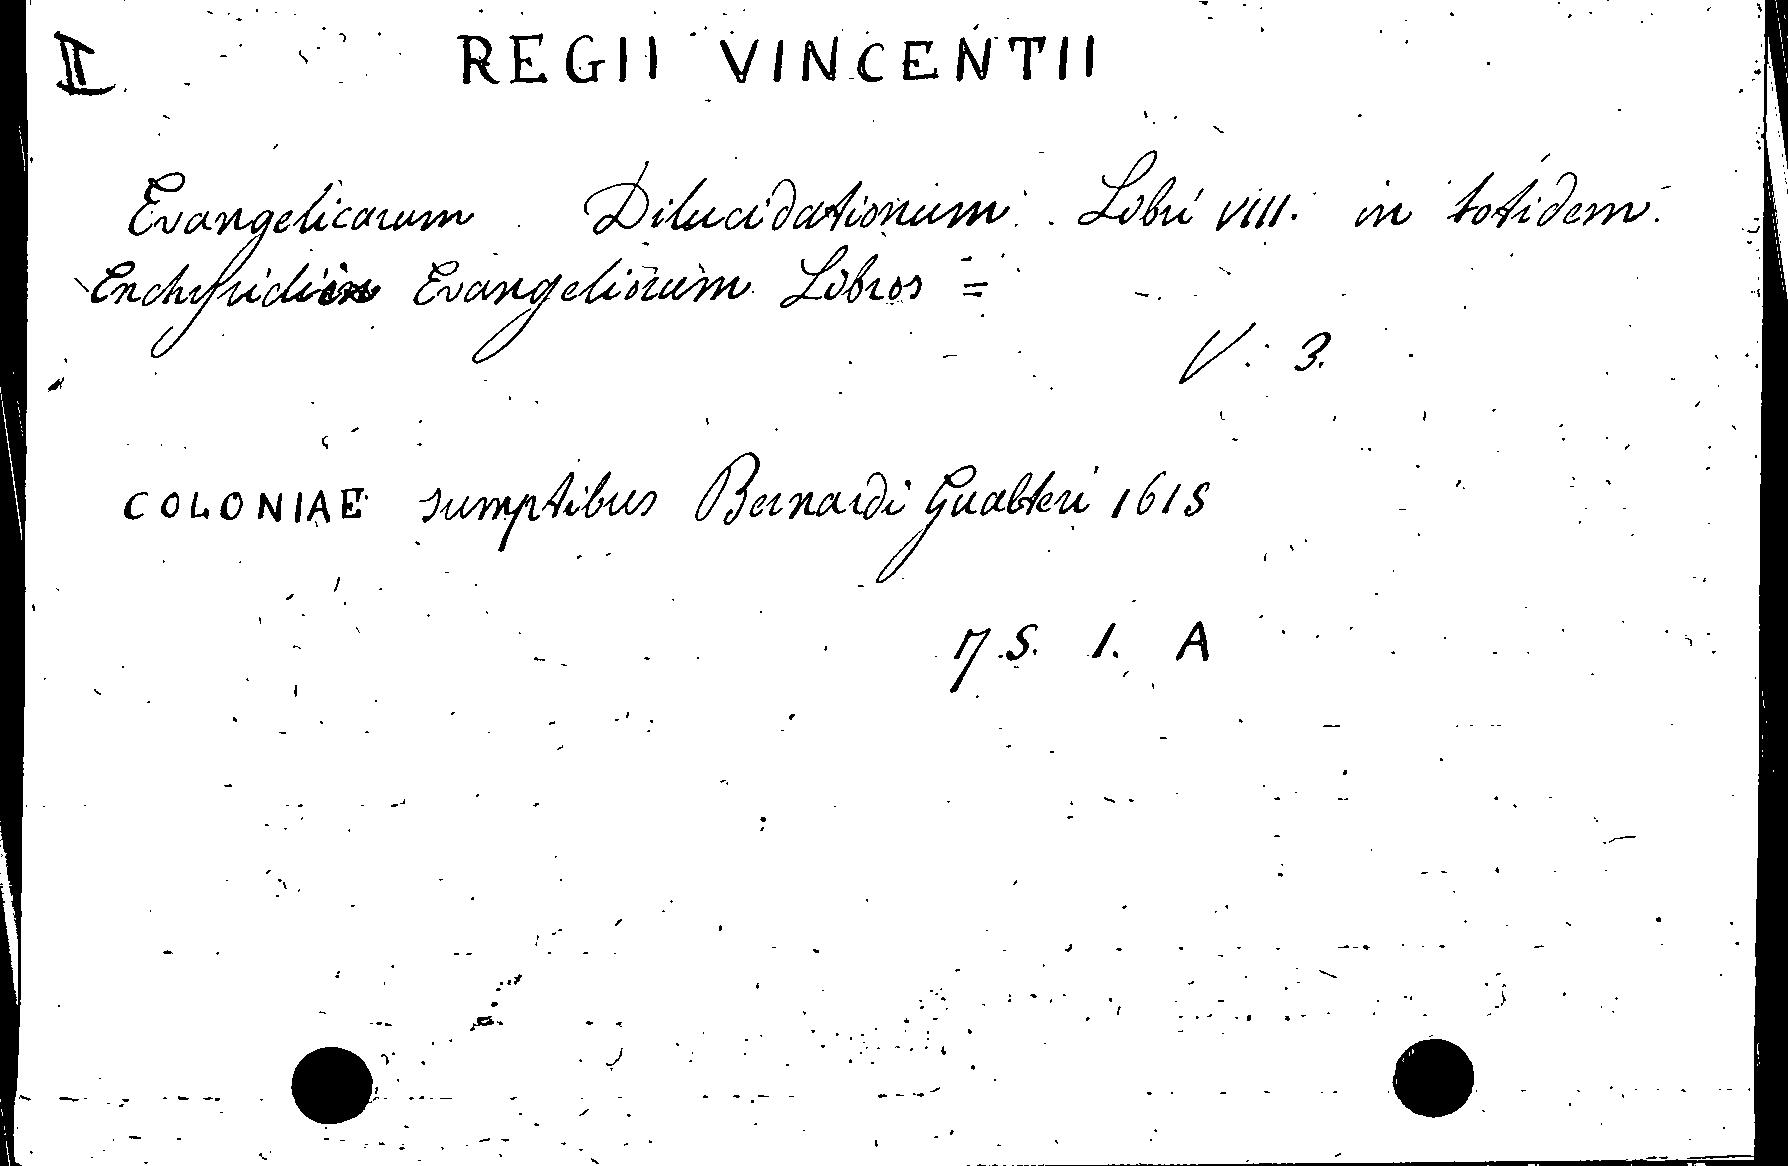 II REGII VINCENTII
Evangelicarum Dilucidationum Libri VIII. in totidem
Enchyridion Evangeliorum Libros =
V. 3.
COLONIAE sumptibus Bernardi Gualteri 1615
7 S. 1. A